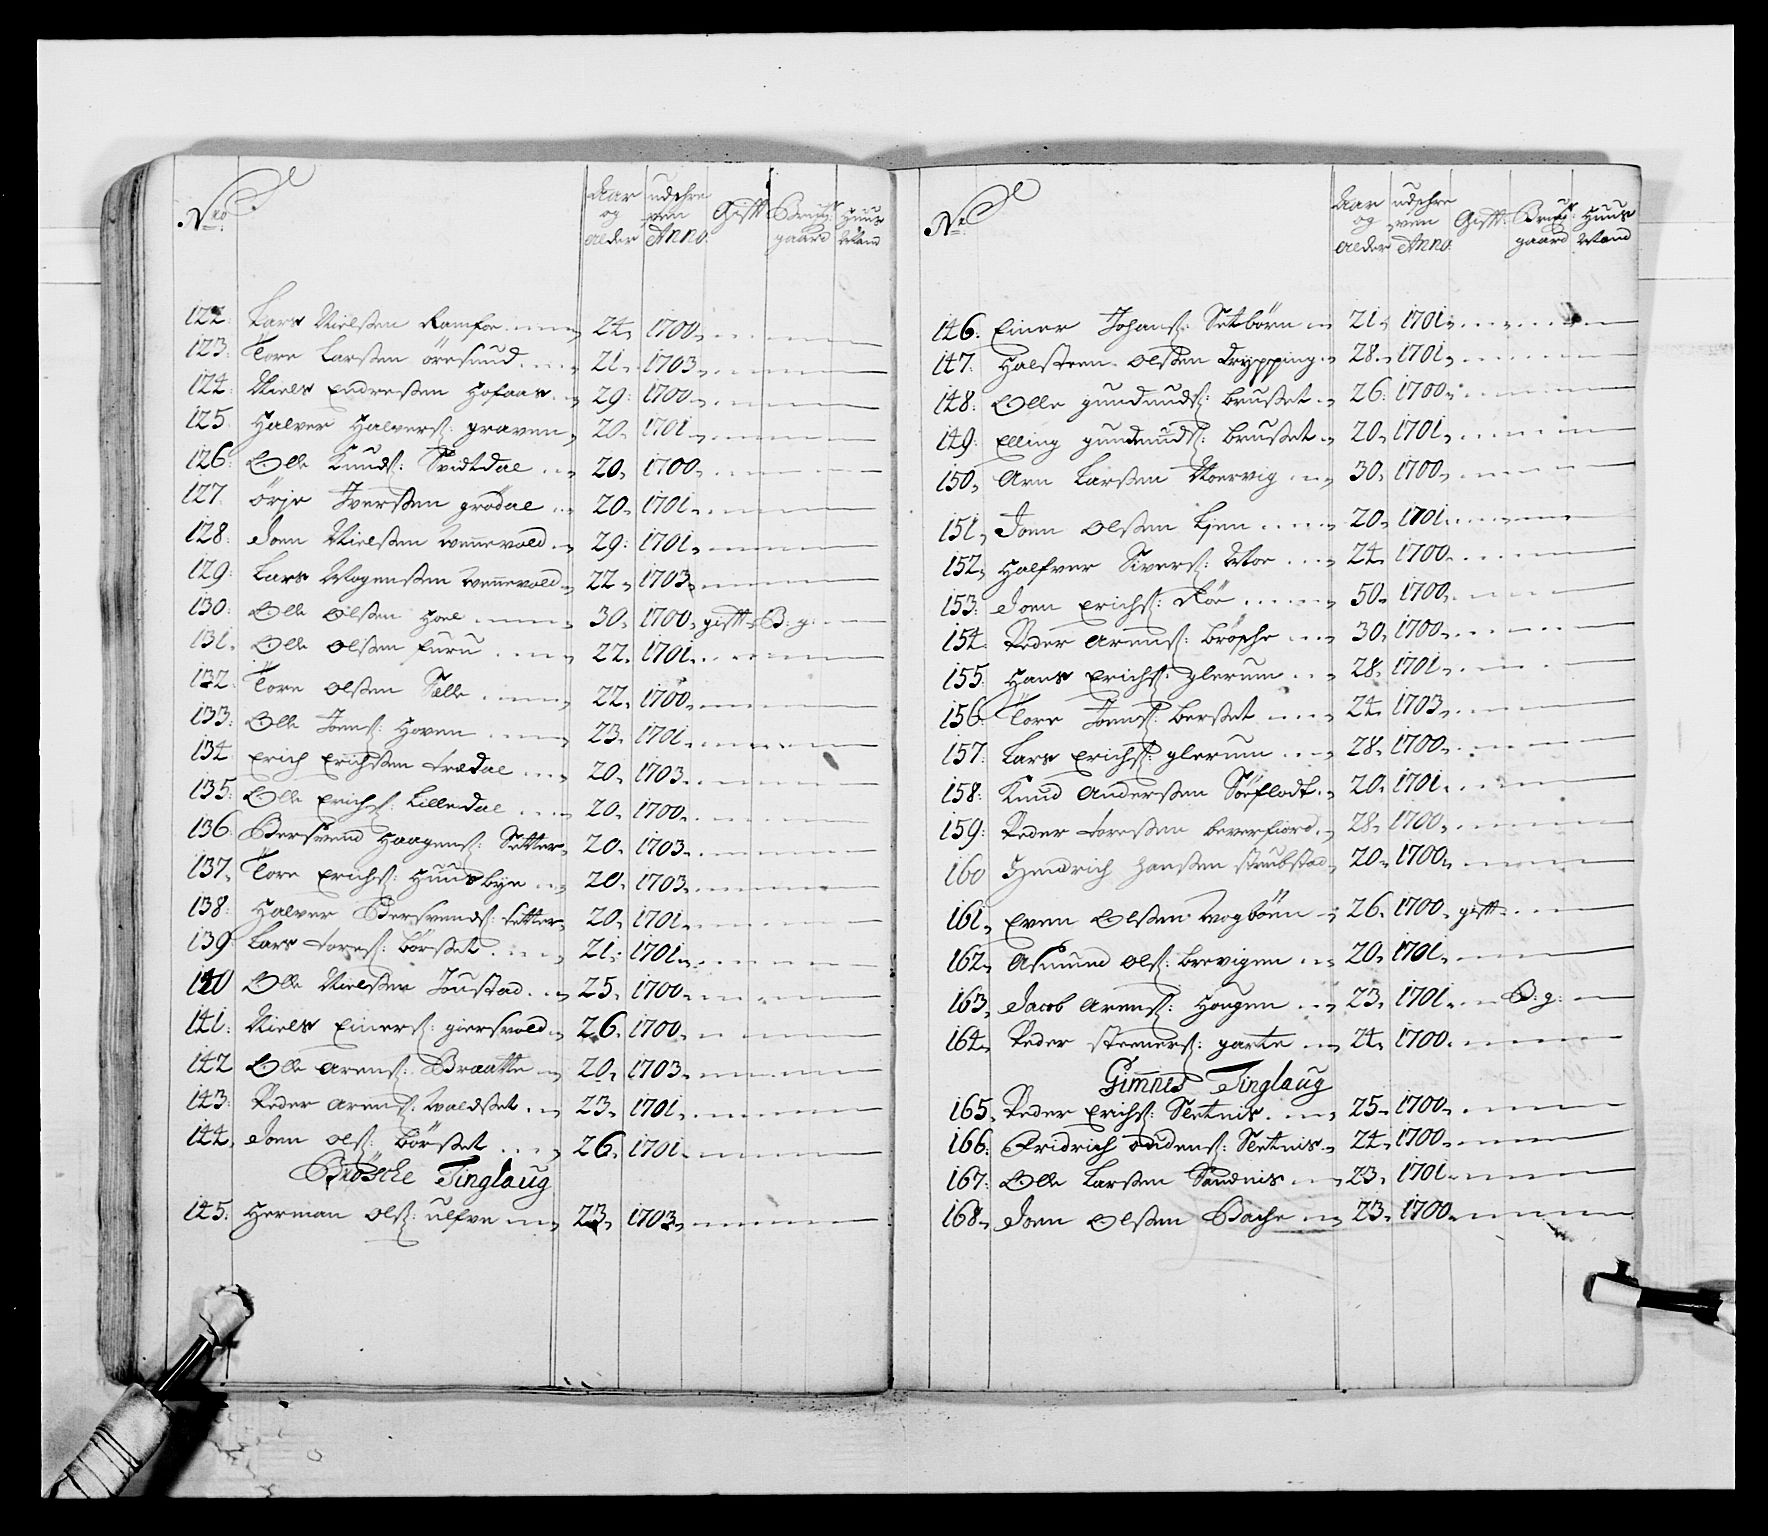 Nro Aar og alder udschreven Anno Gifft Bruger gaard Huus Mand
122: Lars Nielßen Ramfoe 24, 1700,
123: Tore Larßen öresund 21, 1703,
124: Niels Endreßen Hofaas 29: 1700,
125. Halver Halvers: graven 20, 1701,
126: Olle Knuds: Svidtdal 20, 1700,
127. örje Iverßen grødal 20, 1701,
128: Joen Nielßen Wennevold 29: 1701,
129: Lars Mogenßen Wennevold 22, 1703,
130: Olle Olßen Hoel 30, 1700, gifft B: g:
131. Olle Olßen furu 22, 1701,
132: Tore Olßen Selle 22, 1700,
133: Olle Joens: Hoven 23, 1701,
134 Erich Erichßen trædal 20, 1703,
135: Olle Erichs: Lilledal 20, 1700,
136: Bersvend Haagens: Setter 20, 1703,
137, Tore Erichs: Huusbye 20, 1703,
138: Halver Bersvends: Setter 20, 1701,
139 Lars tores: börßet 21, 1701,
140 Olle Nielßen Joustad 25, 1700,
141: Niels Einers: giersvold 26, 1700,
142 Olle Arens: Braatte 20, 1703,
143: Peder Arens: Waldßet 23, 1701,
144, Joen Ols: börßet 26, 1701,
Brösche Tinglaug
145: Herman Ols: ulfve 23, 1703,
No Aar og alder udschreven Anno Gifft: Bruger gaard Huus Mand
146: Einer Johans: Setbörn 21, 1701,
147: Halsteen Olßen drypping 28, 1701,
148: Olle gundmuds: brußet 26: 1700,
149: Elling gundmuds: brußet 20, 1701,
150, Arn Larßen Noervig 30, 1700,
151, Joen Olßen Lien 20, 1701,
152, Halfver Sivers: Moe 24, 1700,
153: Joen Erichs: Röe 50, 1700,
154: Peder Arens: brösche 30, 1700,
155: Hans Erichs: glerum 28, 1701,
156 Tore Joens: berßet 24, 1703,
157: Lars Erichs: glerum 28, 1700,
158: Knud Anderßen Söeflodt 20, 1701,
159: Peder toreßen beverfiord 28, 1700,
160 Hendrich Hanßen strubstad 20, 1700,
161, Even Olßen Vogböen 26, 1700, gifft
162, Asmund Ols: brevigen 20, 1701,
163, Jacob Arens: Hougen 23, 1701, B: g:
164, Peder steeners: garte 24, 1700,
Gimnes Tinglaug
165, Peder Erichs: Sletnis 25, 1700,
166: Fridrich Oudens: Sletnis 24, 1700,
167: Olle Larßen Sandnis 23, 1701,
168, Joen Olßen Bache 23, 1700,